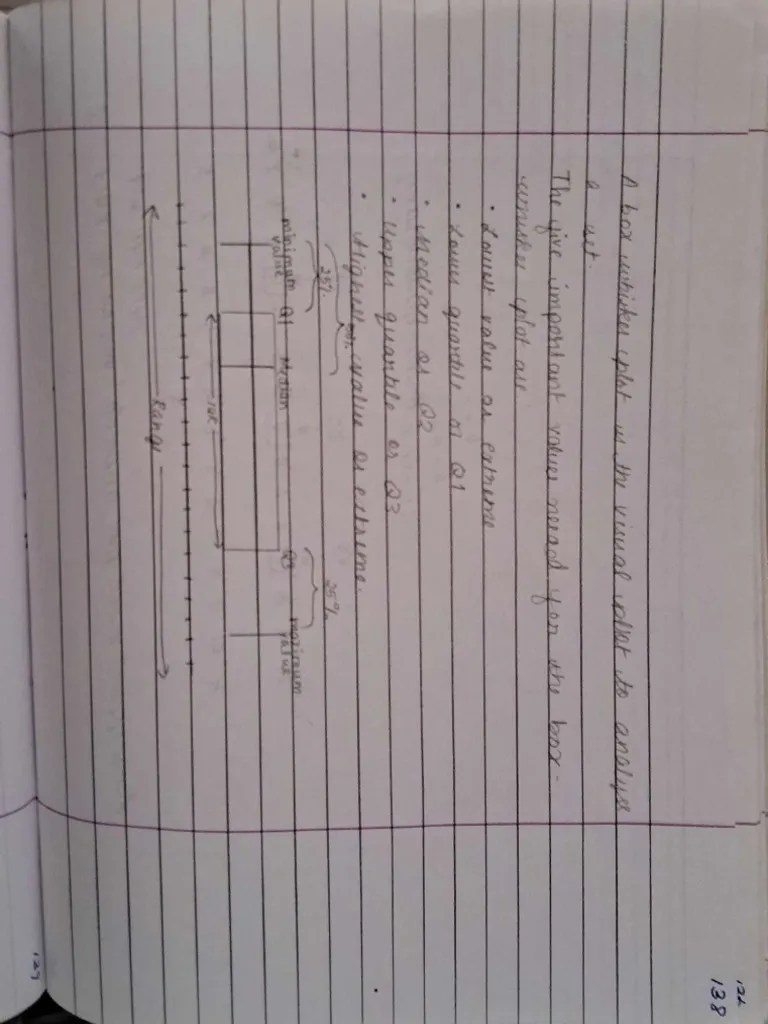 126
138
A box whisker plot is the visual plot to analyse
a set.
The five important values need for the box-
whisker plot are
• Lowest value or extreme
• Lower quartile or Q1
• Median or Q2
• Upper quartile or Q3
• Highest value or extreme.
25% 25%
minimum value Q1 Median Q3 maximum value
IQR
Range
127